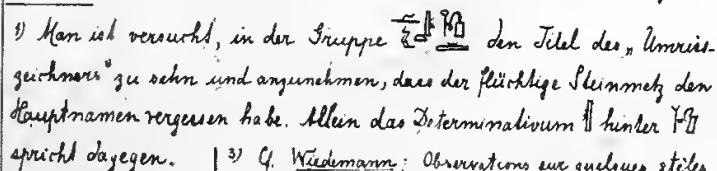 1) Man ist versucht, in der Gruppe den Titel des „Umriss-
zeichners" zu sehn und anzunehmen, dass der flüchtige Steinmetz den
Hauptnamen vergessen habe. Allein das Determinativum hinter
spricht dagegen. | 3) Cf. Wiedemann: Observations sur quelques stèles